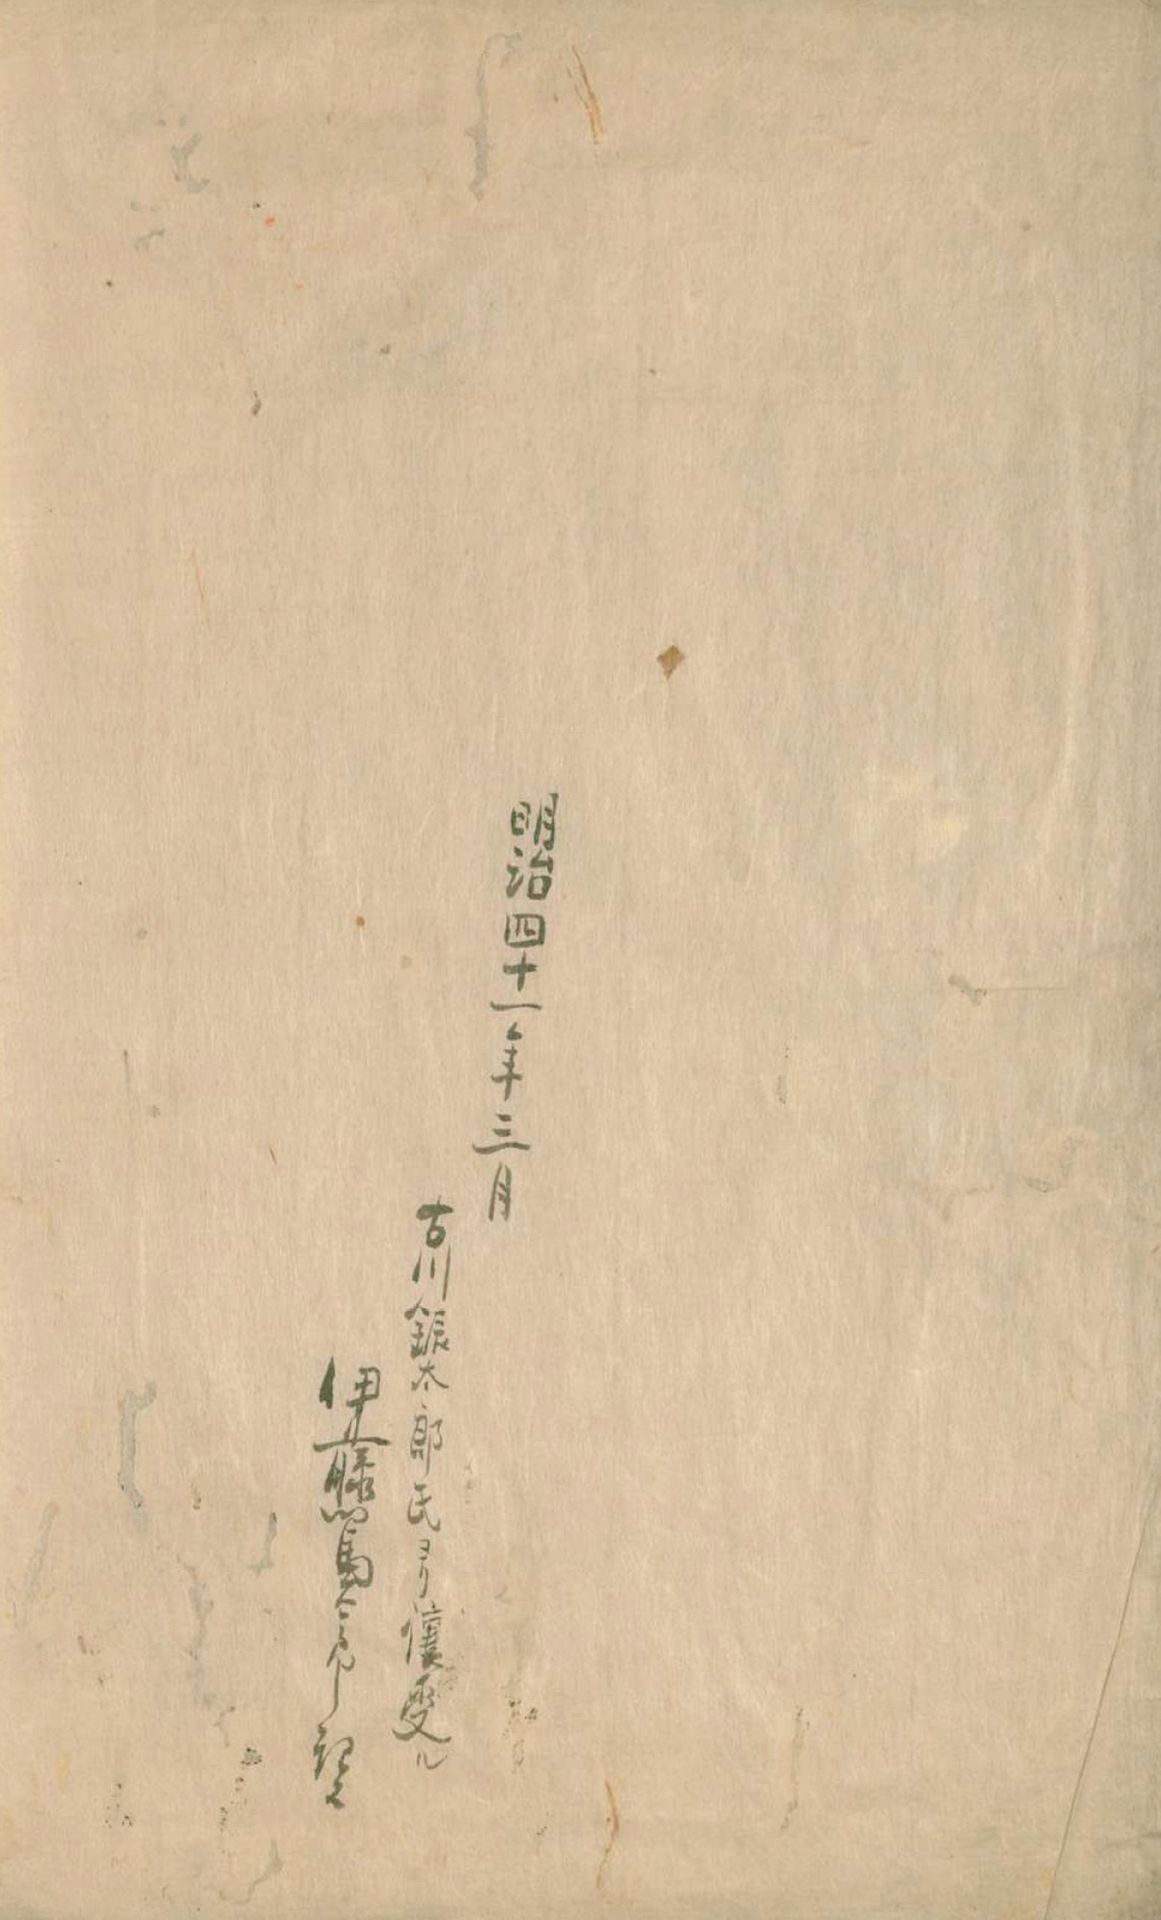 明治四十一年三月
古川銀太郎氏ヨリ譲受ル
伊藤篤太郎記之